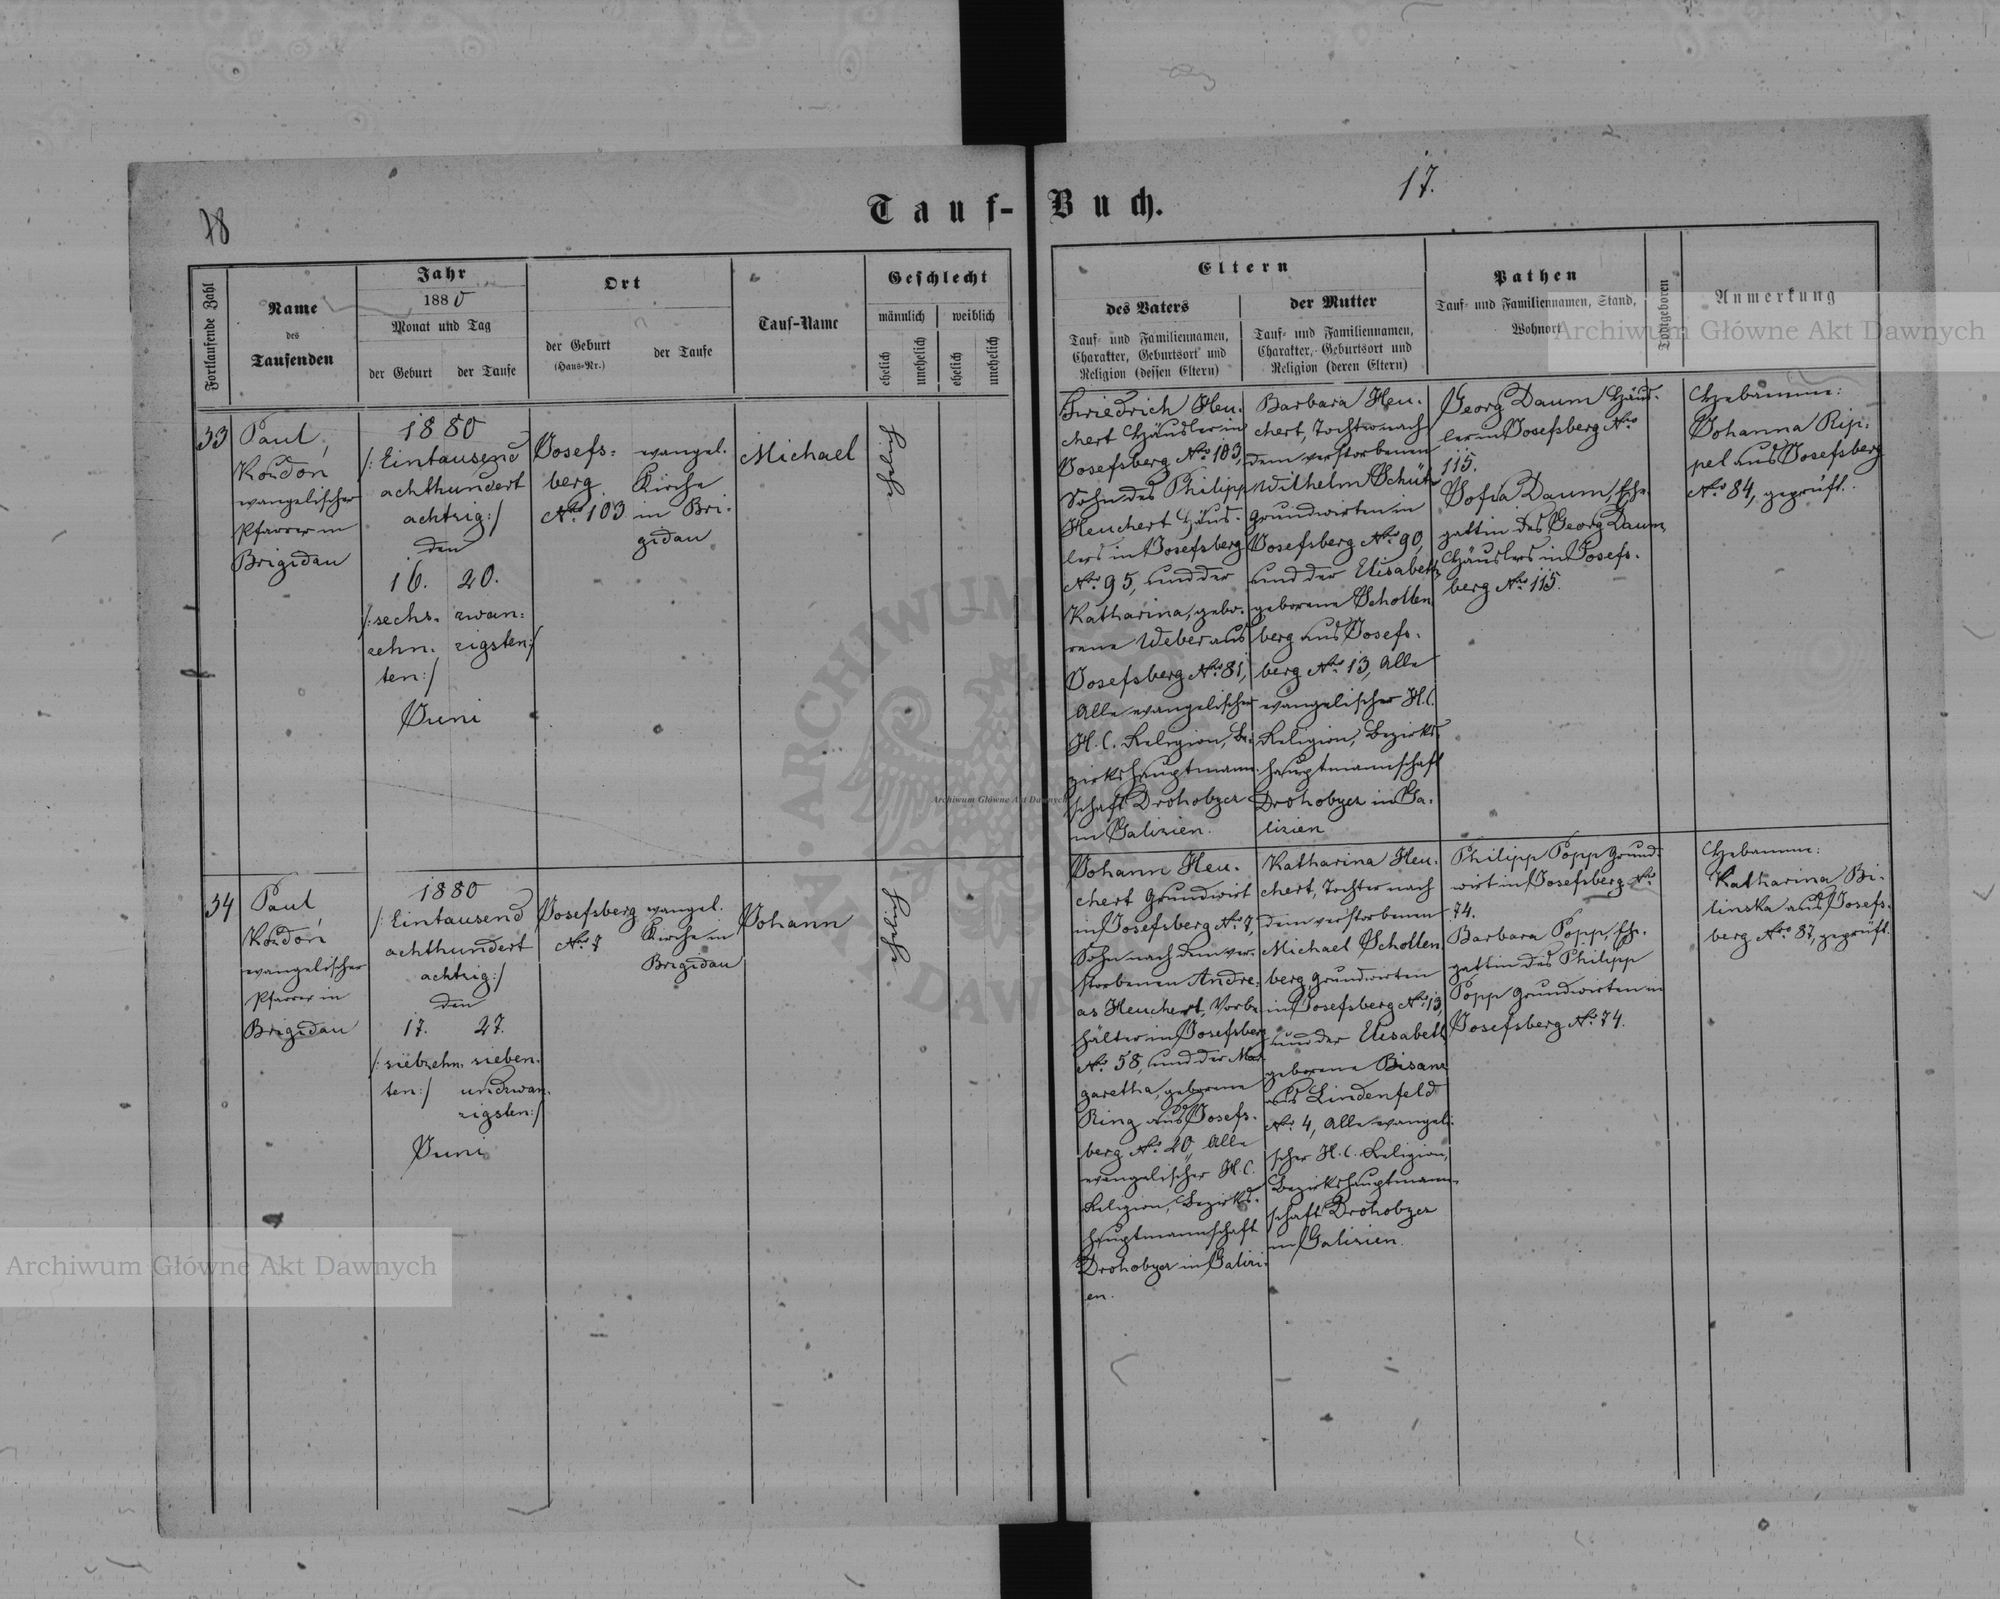 18
17.
Tauf-Buch.
Fortlaufende Zahl
Name
des
Taufenden
Jahr
1880
Monat und Tag
der Geburt
der Taufe
Ort
der Geburt
(Haus-Nr.)
der Taufe
Tauf-Name
Geschlecht
männlich
weiblich
ehelich
unehelich
ehelich
unehelich
Eltern
des Vaters
Tauf- und Familiennamen,
Charakter, Geburtsort und
Religion (dessen Eltern)
der Mutter
Tauf- und Familiennamen,
Charakter, Geburtsort und
Religion (deren Eltern)
Pathen
Tauf- und Familiennamen, Stand,
Wohnort
Todtgeboren
Anmerkung
33
Paul
Koźdoń
evangelischer
Pfarrer in
Brigidau
1880
/: Eintausend
achthundert
achtzig :/
den
16. 20.
/: sechs- zwan-
zehn- zigsten :/
ten :/
Juni
Josefs-
berg
Nro 103
evangel.
Kirche
in Bri-
gidau
Michael
ehelich
Friedrich Heu-
chert Häusler in
Josefsberg Nro 103,
Sohn des Philipp
Heuchert Häus-
lers in Josefsberg
Nro 95, und der
Katharina, gebo-
rene Weber aus
Josefsberg Nro 81,
Alle evangelischer
H. C. Religion, Be-
zirkshauptmann-
schaft Drohobycz
in Galizien.
Barbara Heu-
chert, Tochter nach
dem verstorbenen
Wilhelm Schütz
Grundwirten in
Josefsberg Nro 90,
und der Elisabeth
geborene Schollen
berg aus Josefs-
berg Nro 13, Alle
evangelischer H. C.
Religion, Bezirks-
hauptmannschaft
Drohobycz in Ga-
lizien
Georg Daum Häus-
ler in Josefsberg Nro
115.
Sofia Daum, Ehe-
gattin des Georg Daum,
Häuslers in Josefs-
berg Nro 115.
Hebamme:
Johanna Rip-
pel aus Josefsberg
Nro 84, geprüft.
34
Paul
Koźdoń
evangelischer
Pfarrer in
Brigidau
1880
/: Eintausend
achthundert
achtzig :/
den
17. 27.
/: siebzehn- sieben-
ten :/ undzwan-
zigsten :/
Juni
Josefsberg
Nro 7
evangel.
Kirche in
Brigidau
Johann
ehelich
Johann Heu-
chert Grundwirt
in Josefsberg Nro 7,
Sohn nach dem ver-
storbenen Andre-
as Heuchert, Vorbe-
hälter in Josefsberg
Nro 58, und der Mar-
garetha, geborene
Ring aus Josefs-
berg Nro 20, Alle
evangelischer H. C.
Religion, Bezirks-
hauptmannschaft
Drohobycz in Galizi-
en.
Katharina Heu-
chert, Tochter nach
dem verstorbenen
Michael Schollen
berg, Grundwirten
in Josefsberg Nro 13,
und der Elisabeth
geborene Bisanz
aus Lindenfeld
Nro 4, Alle evangeli-
scher H. C. Religion,
Bezirkshauptmann-
schaft Drohobycz
in Galizien.
Philipp Popp Grund-
wirt in Josefsberg Nro
74.
Barbara Popp, Ehe-
gattin des Philipp
Popp Grundwirten in
Josefsberg Nro 74.
Hebamme:
Katharina Bi-
linska aus Josefs-
berg Nro 87, geprüft.
Archiwum Główne Akt Dawnych
Archiwum Główne Akt Dawnych
Archiwum Główne Akt Dawnych